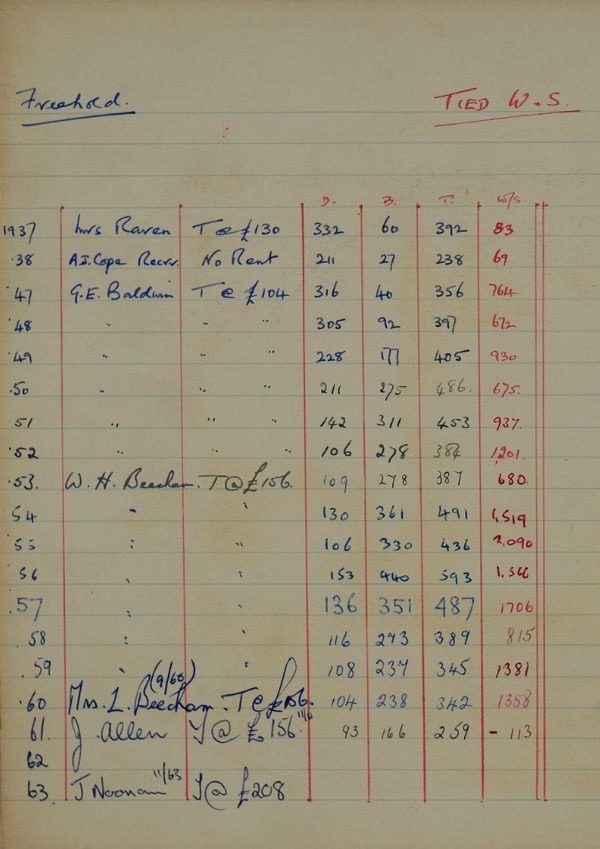 Freehold. TIED W.S.
D. B. T. W/S
1937 Mrs Raven T @ £130 332 60 392 83
.38 A.J. Cope Recvr. No Rent 211 27 238 69
.47 G.E. Baldwin T @ £104 316 40 356 764
.48 " " " 305 92 397 672
.49 " " " 228 177 405 930
.50 " " " 211 275 486. 675.
51 " " " 142 311 453 937.
.52 " " " 106 278 384 1,201.
.53. W.H. Beecham. T @ £156. 109 278 387 680
54 " " 130 361 491 1,519
55 " " 106 330 436 2,090
56 " " 153 440 593 1,566
.57 " " 136 351 487 1706
.58 " " 116 273 389 815
.59 " " 108 237 345 1381
.60 Mrs. L. Beecham. (9/60) T @ £156. 104 238 342 1358
61. J Allen T @ £156 93 166 259 - 113
62
63. J Noonan 11/63 T @ £208